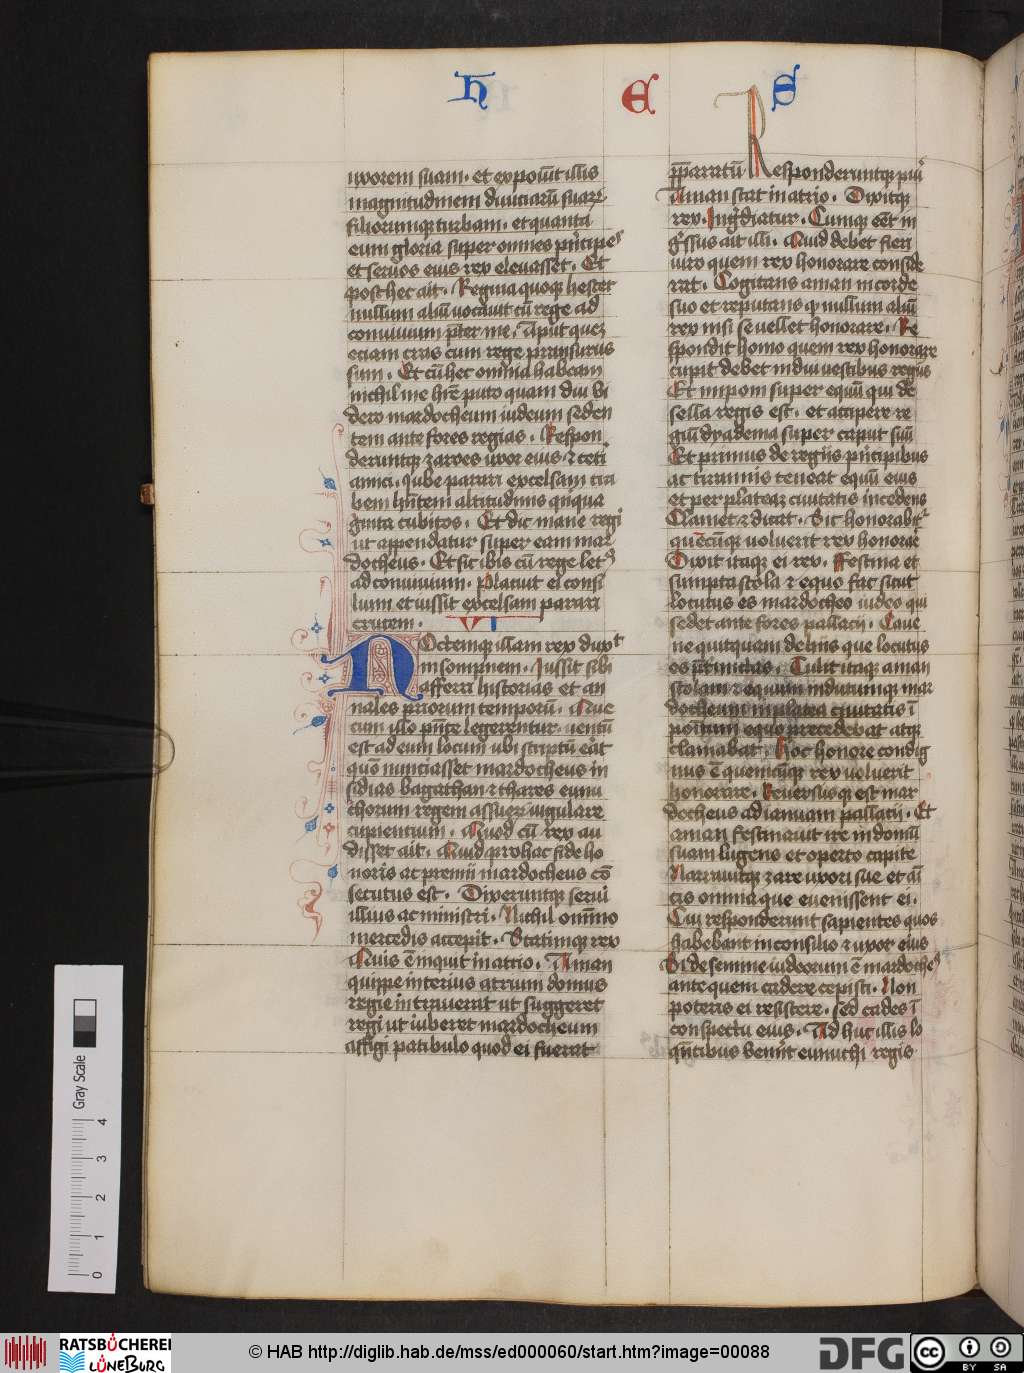 h E S
uxorem suam. et exposuit illis
magnitudinem diuiciarū suarꝝ
filiorumqꝫ turbam. et quanta
eum gloria super omnes pͥncipes
et seruos eius rex eleuasset. Et
post hec ait. Regina quoqꝫ hester
nullum aliū uocauit cū rege ad
conuiuium pͥter me. Aput quez
eciam cras cum rege pransurus
sum. Et cū hec omnia habeam
nichil me hr̄e puto quam diu vi
dero mardocheum iudeum seden
tem ante fores regias. Respon
deruntqꝫ zares uxor eius ⁊ ceti
amici. Iube parari excelsam tra
bem hn̄tem altitudinis qͥnqua
ginta cubitos. Et dic mane regi
ut appendatur super eam mar
docheus. Et sic ibis cū rege let⁹
ad conuiuium. Placuit ei consi
lium et iussit excelsam parari
crucem.
Noctemqꝫ illam rex duxͭ
insompnem. Iussit sibi
afferri historias et an
nales priorum temporū. Que
cum illo pn̄te legerentur. uentū
est ad eum locum ubi scriptū eāt
quō nunciasset mardocheus in
sidias bagathan ⁊ thares eunu
chorum regem assuerꝫ iugulare
cupientium. Quod cū rex au
disset ait. Quid pro hac fide ho
noris ac premii mardocheus cō
secutus est. Dixeruntqꝫ serui
illius ac ministri. Nichil omīno
mercedis accepit. Statimqꝫ rex
Quis ē inquit in atrio. Aman
quippe interius atrium domus
regie intrauerat ut suggeret
regi ut iuberet mardocheum
affigi patibulo quod ei fuerat
p̄paratū Responderuntqꝫ puͥ
Aman stat in atrio. Dixitqꝫ
rex. Ingͥdiatur. Cumqꝫ eēt in
gͥssus ait illi. Quid debet fieri
uiro quem rex honorare conside
rat. Cogitans aman in corde
suo et reputans qꝫ nullum aliū
rex nisi se uellet honorare. Re
spondit homo quem rex honorare
cupit debet indui uestibus regiis
Et imponi super equū qui de
sella regis est. et accipere re
giū dyadema super caput suū
Et primus de regiis pͥncipibus
ac tirannis teneat equū eius
et per plateaꝫ ciuitatis incedens
Clamet ⁊ dicat. Sic honorabitͬ
quēcūqꝫ uoluerit rex honorar̄
Dixit itaqꝫ ei rex. Festina et
sumpta stola ⁊ equo fac sicut
locutus es mardocheo iudeo qui
sedet ante fores pallacii. Caue
ne quitquam de hiis que locutus
es ītmittas. Tulit itaqꝫ aman
stolam ⁊ equum indutumqꝫ mar
docheum in platea ciuitatis ī
poītum equo precedebat atqꝫ
clamabat. Hoc honore condig
nus ē quemcūqꝫ rex uoluerit
honorare. Reuersusqꝫ est mar
docheus ad ianuam pallacii. Et
aman festinauit ire in domū
suam lugens et operto capite
Narrauitqꝫ zare uxori sue et ai
cis omnia que euenissent ei.
Cui responderunt sapientes quos
habebant in consilio ⁊ uxor eius
Si de semine iudeorum ē mardoche⁹
ante quem cadere cepisti. Non
poteris ei resistere. sed cades ī
conspectu eius. Ad huc illis lo
qn̄tibus uenīnt eunuchi regis
Gray Scale
0 1 2 3 4
RATSBÜCHEREI
LÜNEBURG
© HAB http://diglib.hab.de/mss/ed000060/start.htm?image=00088
DFG
cc BY SA